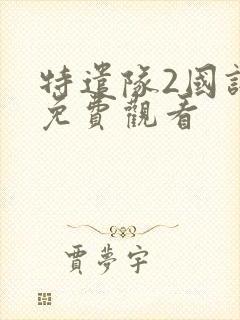 特遣隊2國語
免費觀看
賈夢宇